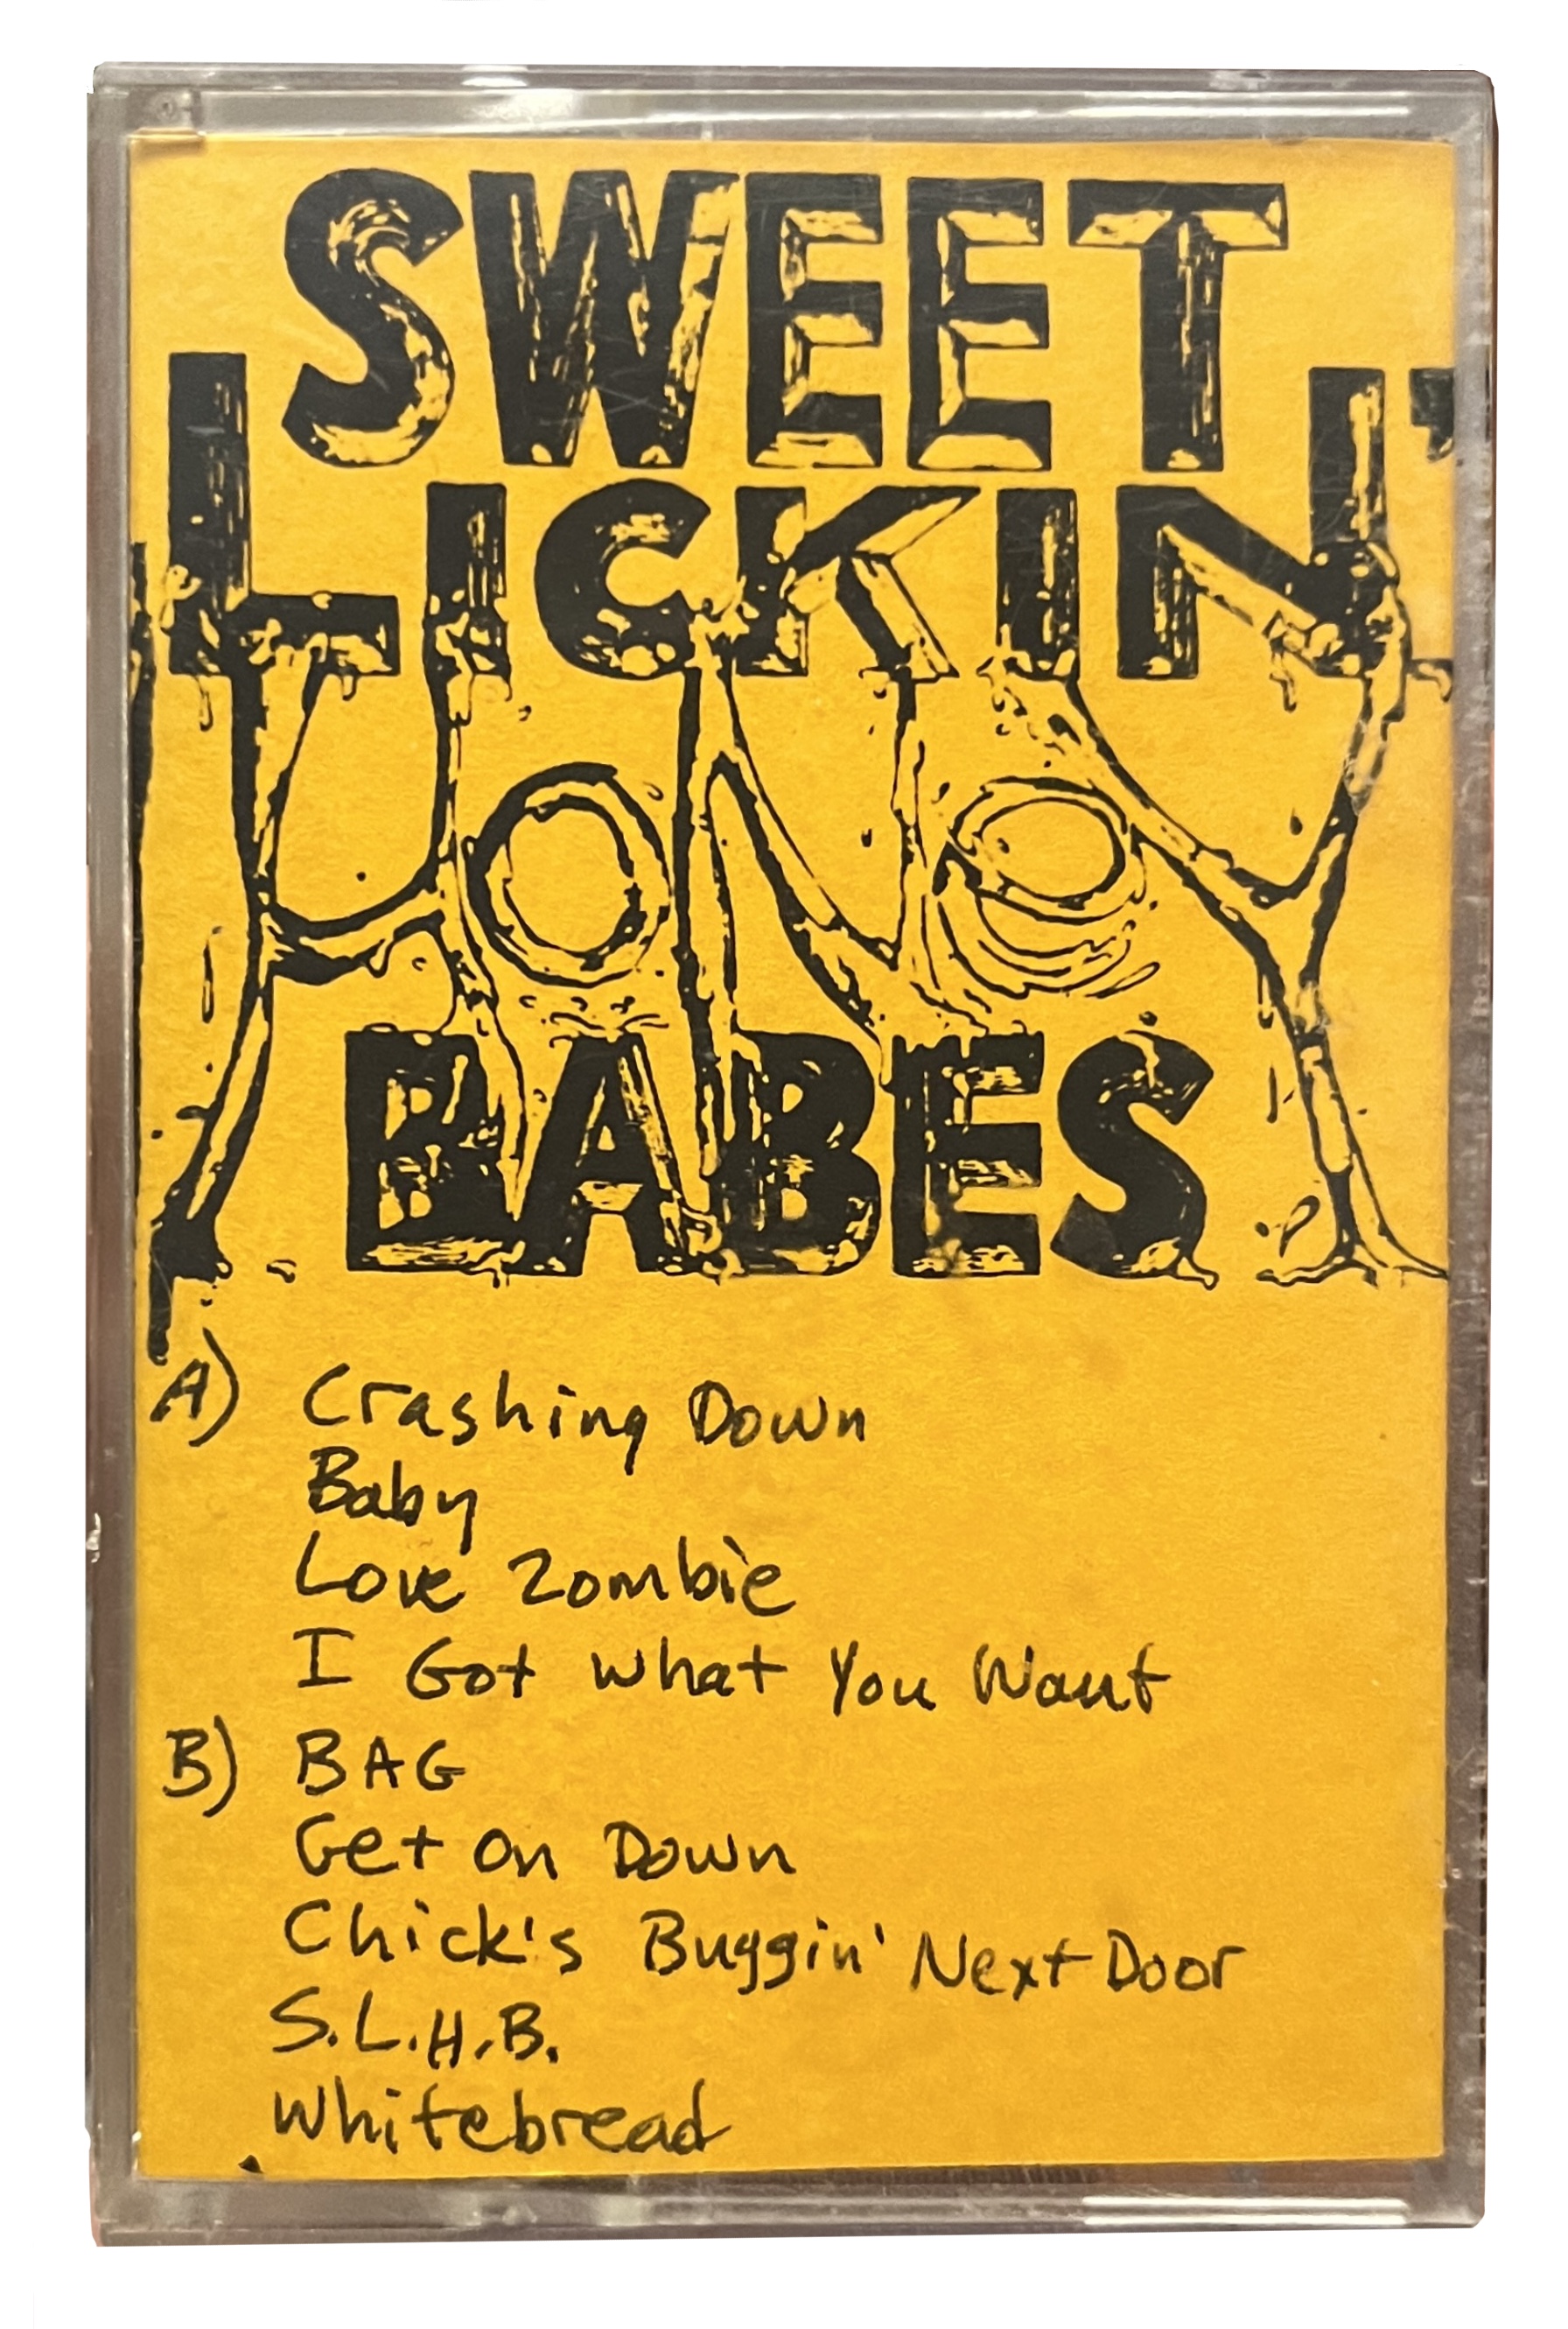 SWEET
LICKIN'
HONEY
BABES
A) Crashing Down
Baby
Love Zombie
I Got What You Want
B) BAG
Get On Down
Chick's Buggin' Next Door
S.L.H.B.
Whitebread